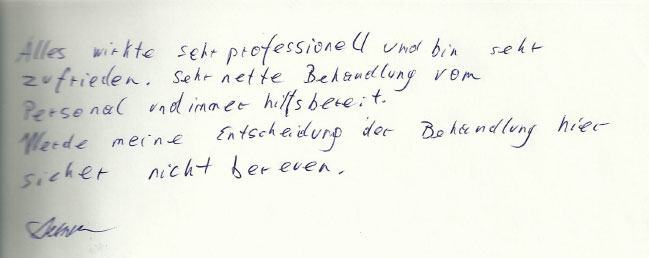 Alles wirkte sehr professionell und bin sehr
zufrieden. Sehr nette Behandlung vom
Personal und immer hilfsbereit.
Werde meine Entscheidung der Behandlung hier
sicher nicht bereuen.